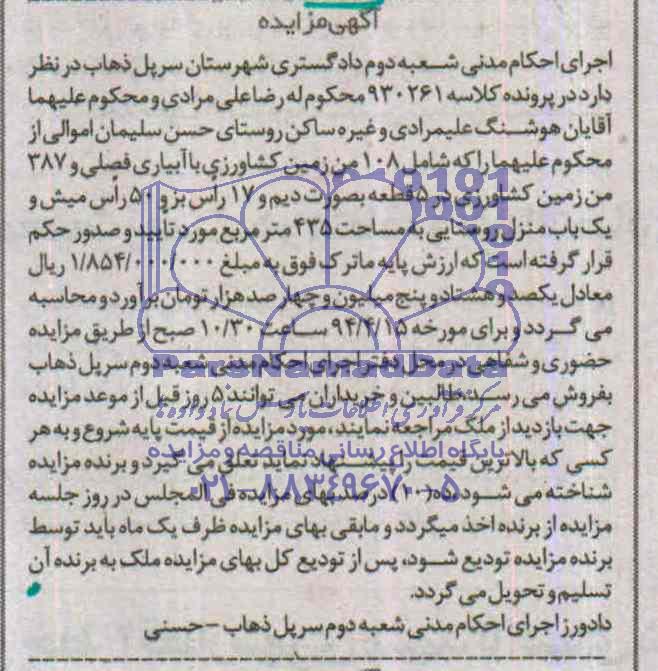 آگهی مزایده
اجرای احکام مدنی شعبه دوم دادگستری شهرستان سرپل ذهاب در نظر
دارد در پرونده کلاسه ۹۳۰۲۶۱ محکوم له رضاعلی مرادی و محکوم علیهما
آقایان هوشنگ علیمرادی و غیره ساکن روستای حسن سلیمان اموالی از
محکوم علیهما را که شامل ۱۰۸ من زمین کشاورزی با آبیاری فصلی و ۳۸۷
من زمین کشاورزی در ۵ قطعه بصورت دیم و ۱۷ رأس بز و ۵۰ رأس میش و
یک باب منزل روستایی به مساحت ۴۳۵ متر مربع مورد تایید و صدور حکم
قرار گرفته است که ارزش پایه ماترک فوق به مبلغ ۱/۸۵۴/۰۰۰/۰۰۰ ریال
معادل یکصد و هشتاد و پنج میلیون و چهار صد هزار تومان برآورد و محاسبه
می گردد و برای مورخه ۹۴/۴/۱۵ ساعت ۱۰/۳۰ صبح از طریق مزایده
حضوری و شفاهی در محل دفتر اجرای احکام مدنی شعبه دوم سرپل ذهاب
بفروش می رسد طالبین و خریداران می توانند ۵ روز قبل از موعد مزایده
جهت بازدید از ملک مراجعه نمایند، مورد مزایده از قیمت پایه شروع و به هر
کسی که بالاترین قیمت را پیشنهاد نماید تعلق می گیرد و برنده مزایده
شناخته می شود، ده (۱۰) درصد بهای مزایده فی المجلس در روز جلسه
مزایده از برنده اخذ میگردد و مابقی بهای مزایده ظرف یک ماه باید توسط
برنده مزایده تودیع شود، پس از تودیع کل بهای مزایده ملک به برنده آن
تسلیم و تحویل می گردد.
دادورز اجرای احکام مدنی شعبه دوم سرپل ذهاب - حسنی
ParsNamadData
مرکز فرآوری اطلاعات پارس نماد داده ها
پایگاه اطلاع رسانی مناقصه و مزایده
۰۲۱-۸۸۳۴۹۶۷۰-۵